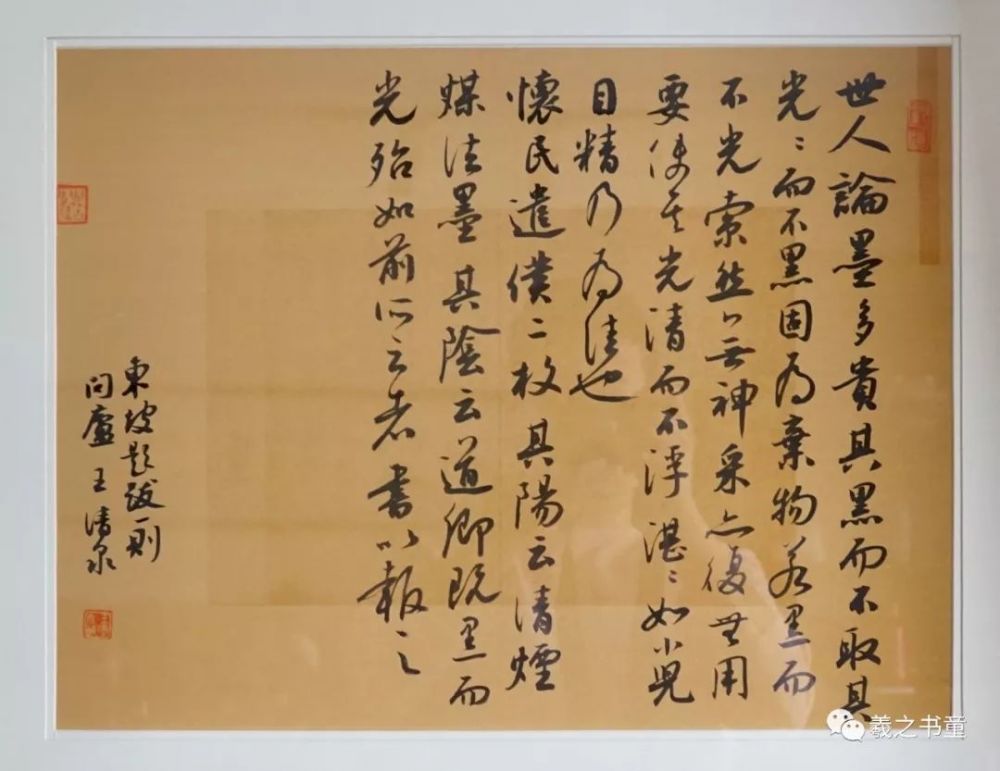 世人論墨多貴其黑而不取其
光〻而不黑固為棄物若黑而
不光索然無神采亦復無用
要使其光清而不浮湛〻如小兒
目精乃為佳也
懷民遣僕二枚其陽云清煙
煤法墨其陰云道卿既黑而
光殆如前所云者書以報之
東坡題跋一則
問廬王清泉
羲之书童